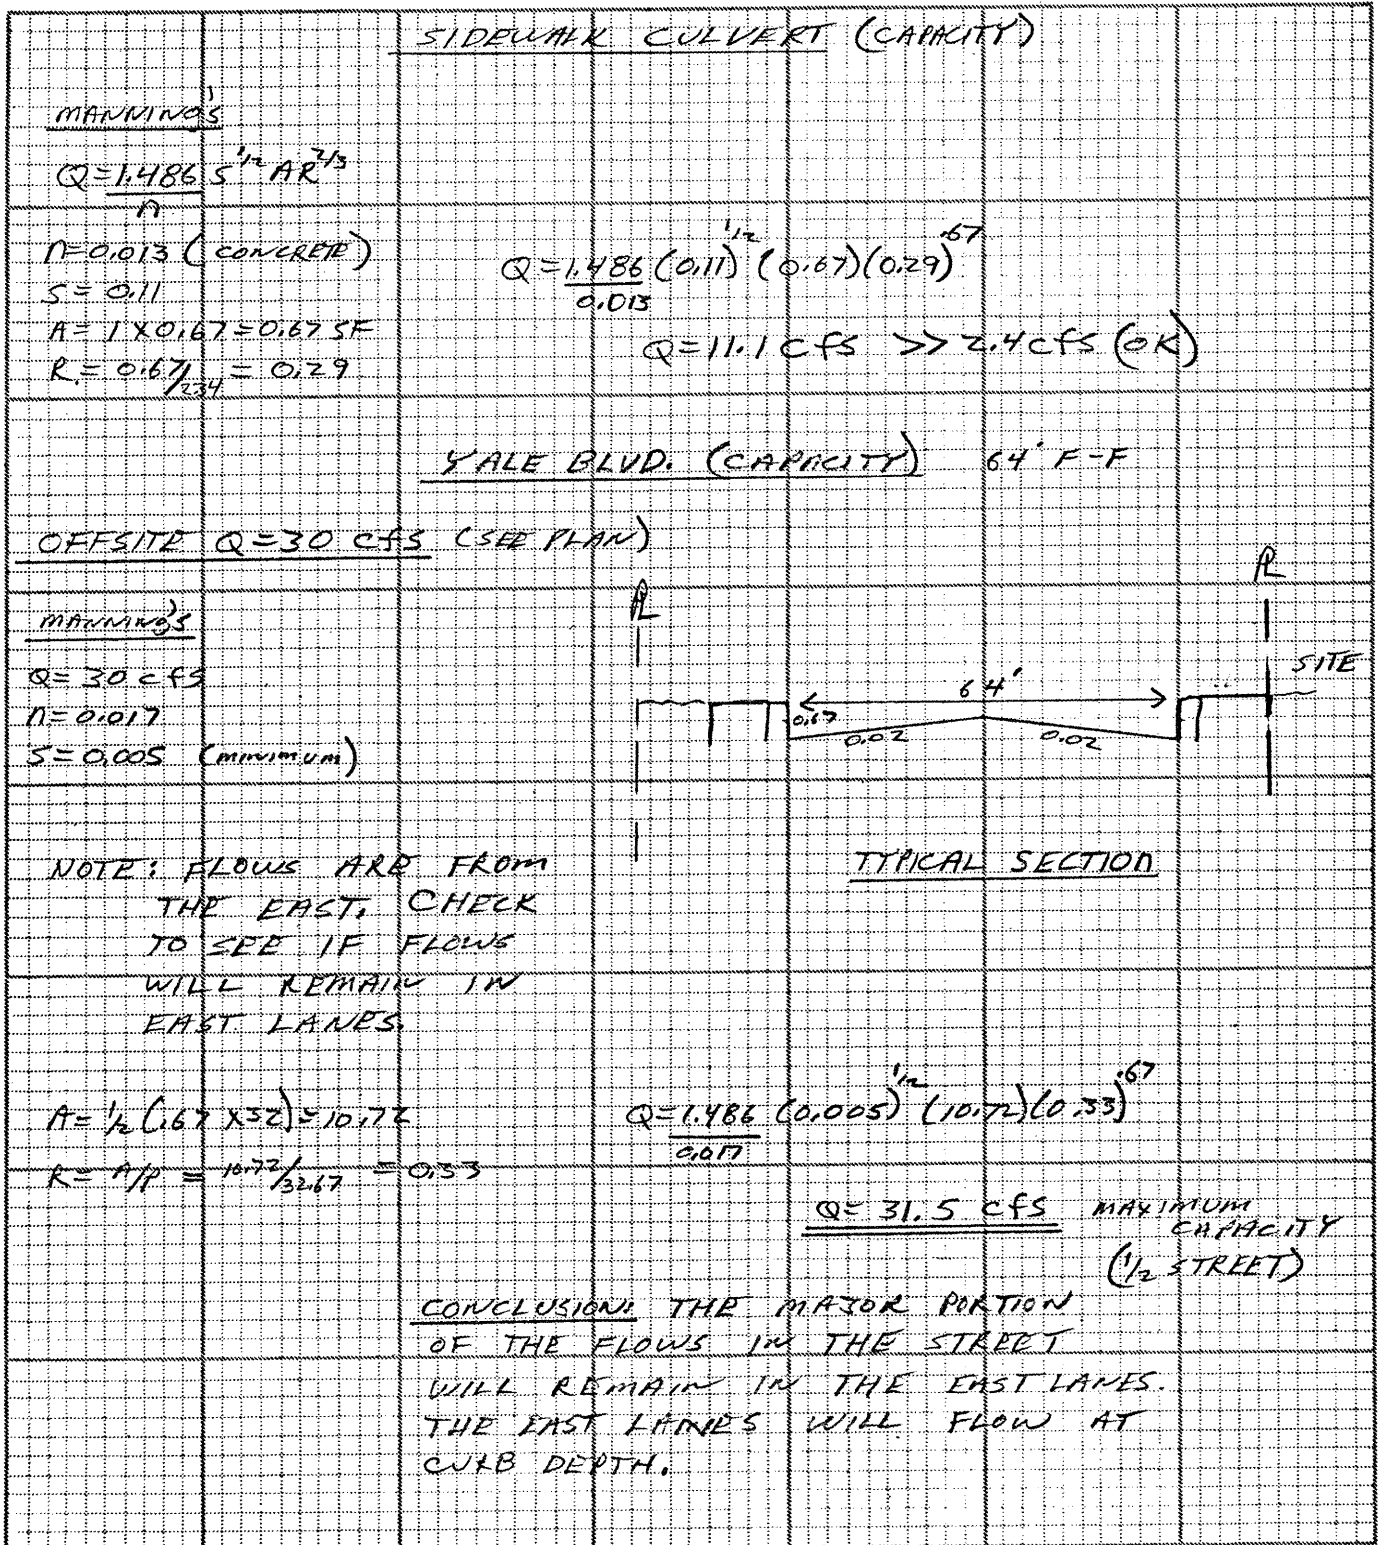 SIDEWALK CULVERT (CAPACITY)
MANNING'S
Q = 1.486/n S^1/2 AR^2/3
n=0.013 (CONCRETE)
S = 0.11
A = 1 X 0.67 = 0.67 SF
R. = 0.67/2.34 = 0.29
Q = 1.486/0.013 (0.11)^1/2 (0.67)(0.29)^.67
Q=11.1 cfs >> 2.4 cfs (OK)
YALE BLVD. (CAPACITY) 64' F-F
OFFSITE Q=30 cfs (SEE PLAN)
MANNING'S
Q= 30 cfs
n=0.017
S=0.005 (minimum)
PL
PL
SITE
64'
0.67
0.02
0.02
TYPICAL SECTION
NOTE: FLOWS ARE FROM
THE EAST. CHECK
TO SEE IF FLOWS
WILL REMAIN IN
EAST LANES.
A= 1/2 (.67 X32)=10.72
R= A/P = 10.72/32.67 = 0.33
Q= 1.486/0.017 (0.005)^1/2 (10.72)(0.33)^.67
Q= 31.5 cfs MAXIMUM
CAPACITY
(1/2 STREET)
CONCLUSION: THE MAJOR PORTION
OF THE FLOWS IN THE STREET
WILL REMAIN IN THE EAST LANES.
THE EAST LANES WILL FLOW AT
CURB DEPTH.